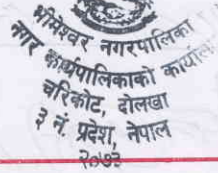 भीमेश्वर नगरपालिका
नगर कार्यपालिकाको कार्यालय
चरिकोट, दोलखा
३ नं. प्रदेश, नेपाल
२०७३